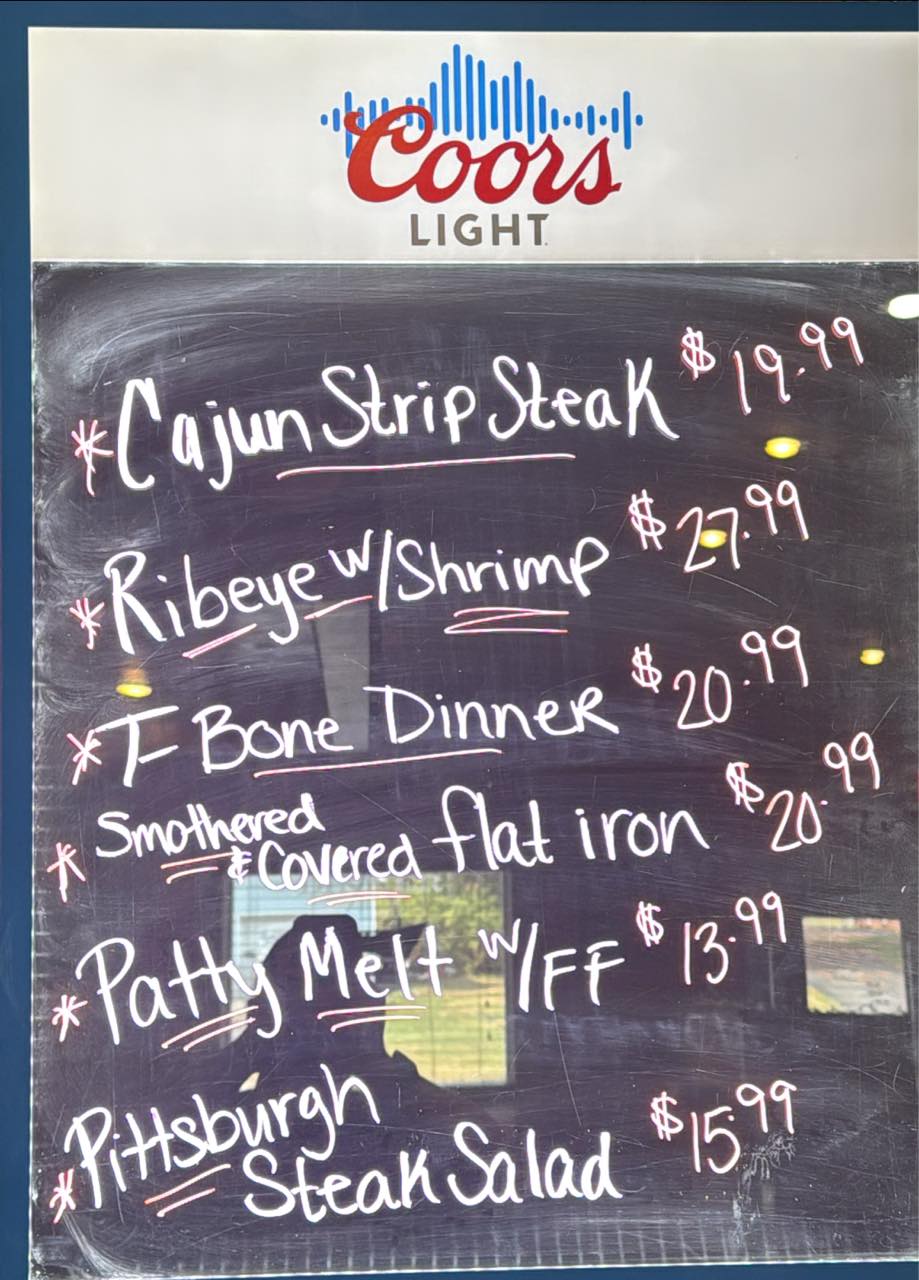 Coors
LIGHT
* Cajun Strip Steak $19.99
* Ribeye w/Shrimp $27.99
* T-Bone Dinner $20.99
* Smothered
& Covered flat iron $20.99
* Patty Melt w/FF $13.99
* Pittsburgh
Steak Salad $15.99